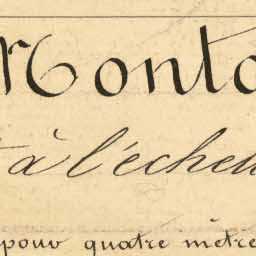 Monta
à l'échell
pour quatre mètre